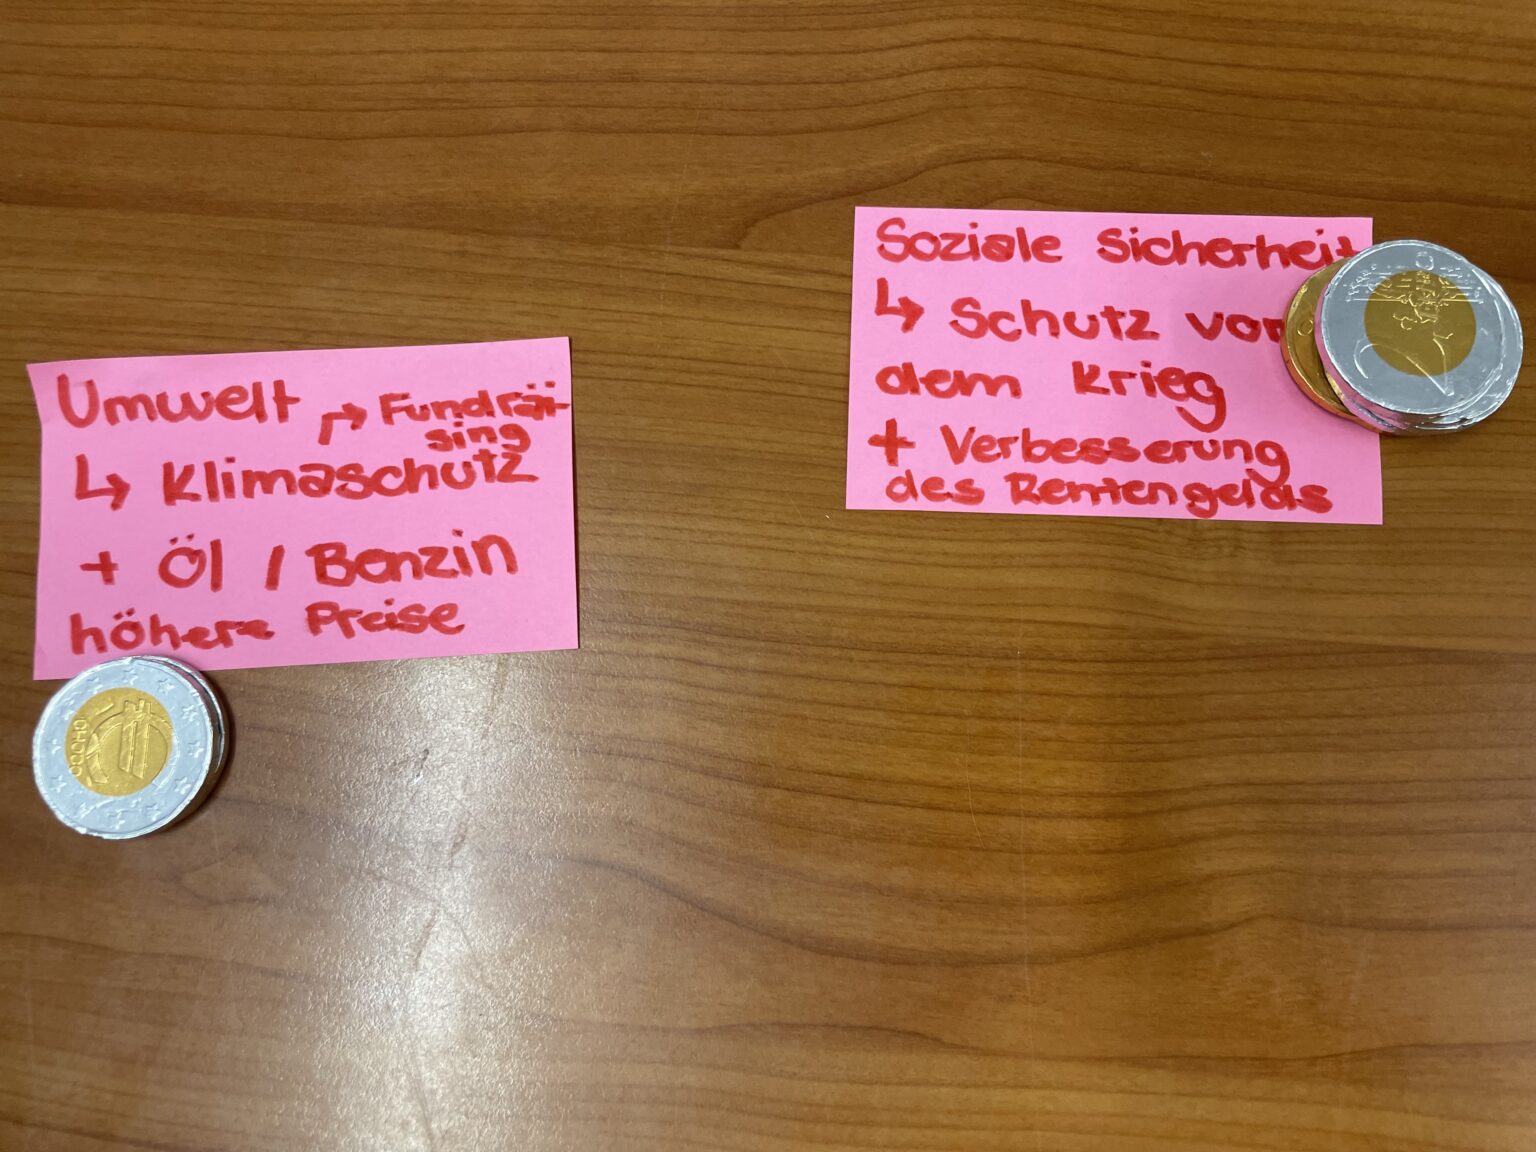 Umwelt
↱ Fundräi-
sing
↳ Klimaschutz
+ Öl / Benzin
höhere Preise
Soziale Sicherheit
↳ Schutz vor
dem Krieg
+ Verbesserung
des Rentengelds